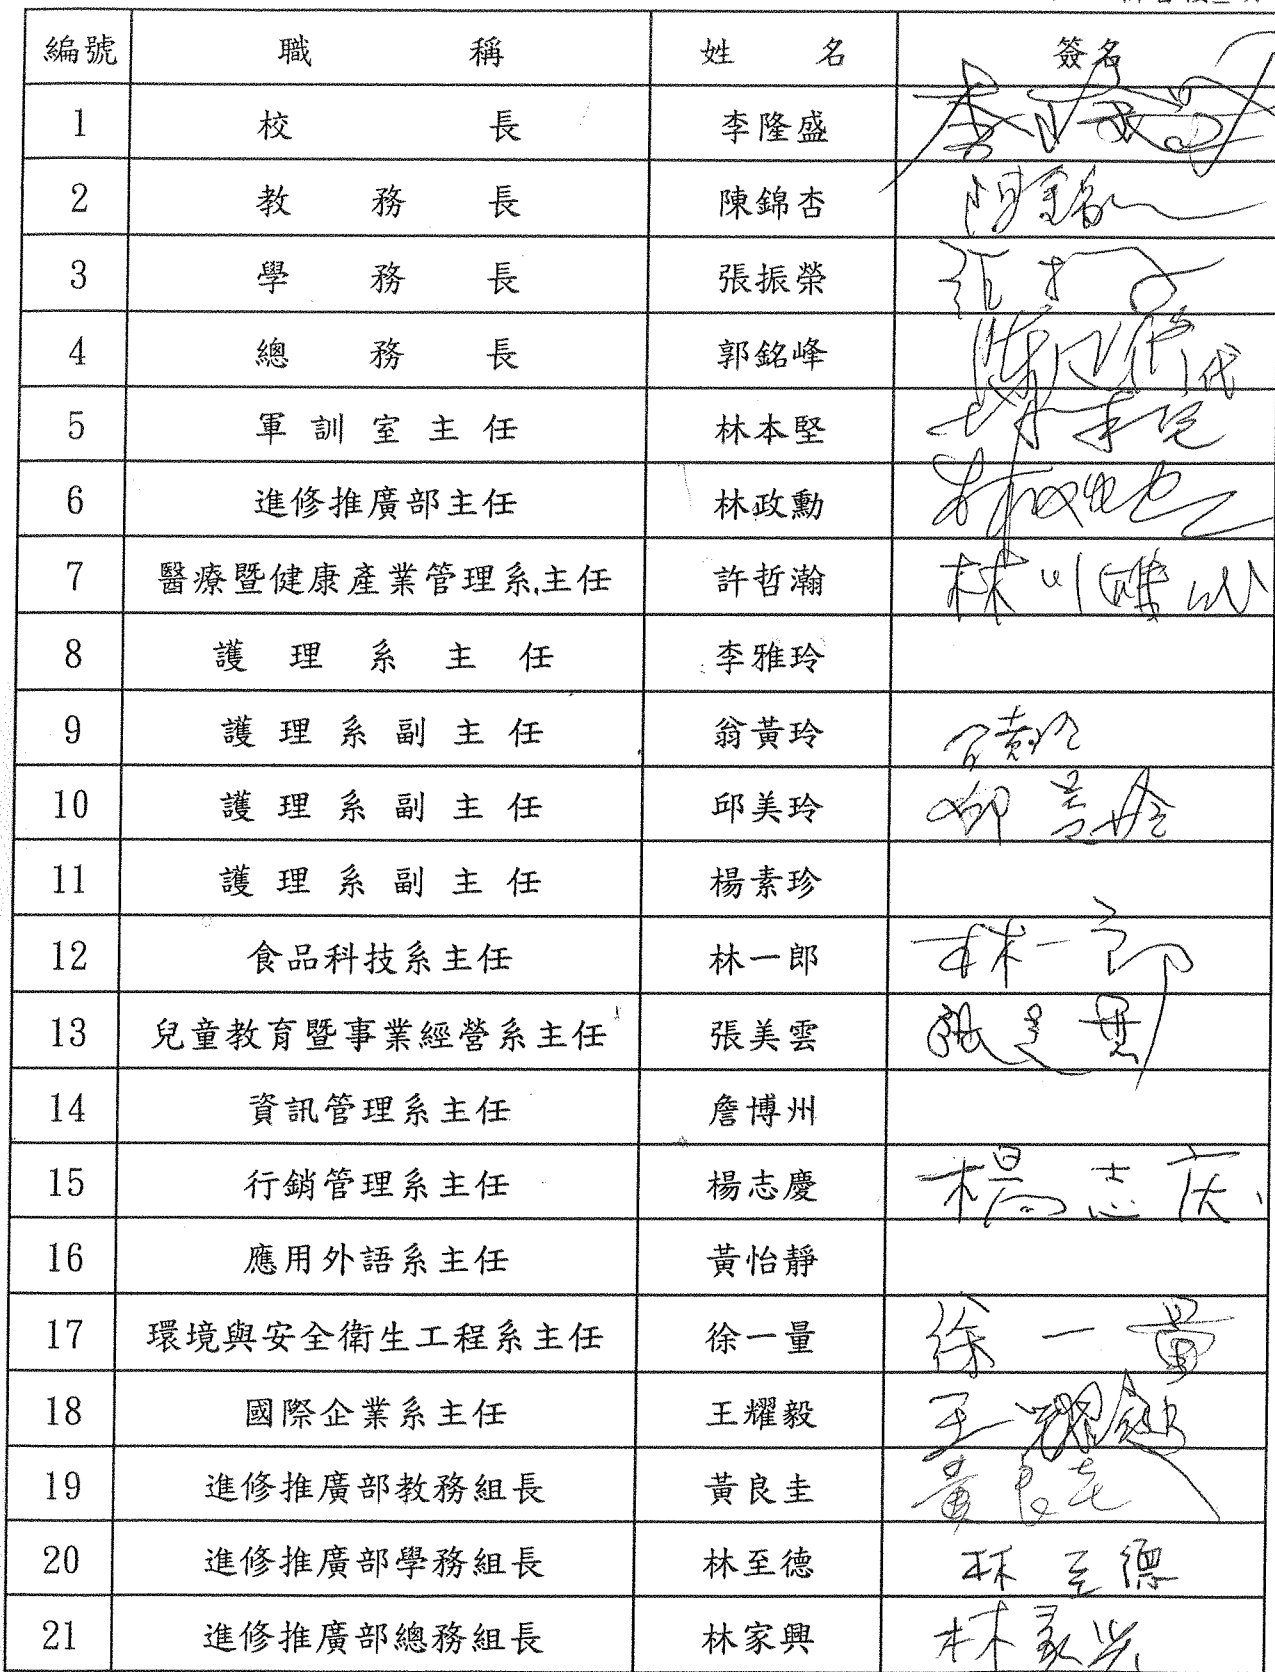 編號 職稱 姓名 簽名
1 校長 李隆盛
2 教務長 陳錦杏
3 學務長 張振榮
4 總務長 郭銘峰 代
5 軍訓室主任 林本堅
6 進修推廣部主任 林政勳
7 醫療暨健康產業管理系主任 許哲瀚
8 護理系主任 李雅玲
9 護理系副主任 翁黃玲
10 護理系副主任 邱美玲
11 護理系副主任 楊素珍
12 食品科技系主任 林一郎 林一郎
13 兒童教育暨事業經營系主任 張美雲
14 資訊管理系主任 詹博州
15 行銷管理系主任 楊志慶 楊志庆
16 應用外語系主任 黃怡靜
17 環境與安全衛生工程系主任 徐一量 徐一量
18 國際企業系主任 王耀毅
19 進修推廣部教務組長 黃良圭 黃良圭
20 進修推廣部學務組長 林至德 林至德
21 進修推廣部總務組長 林家興 林家興